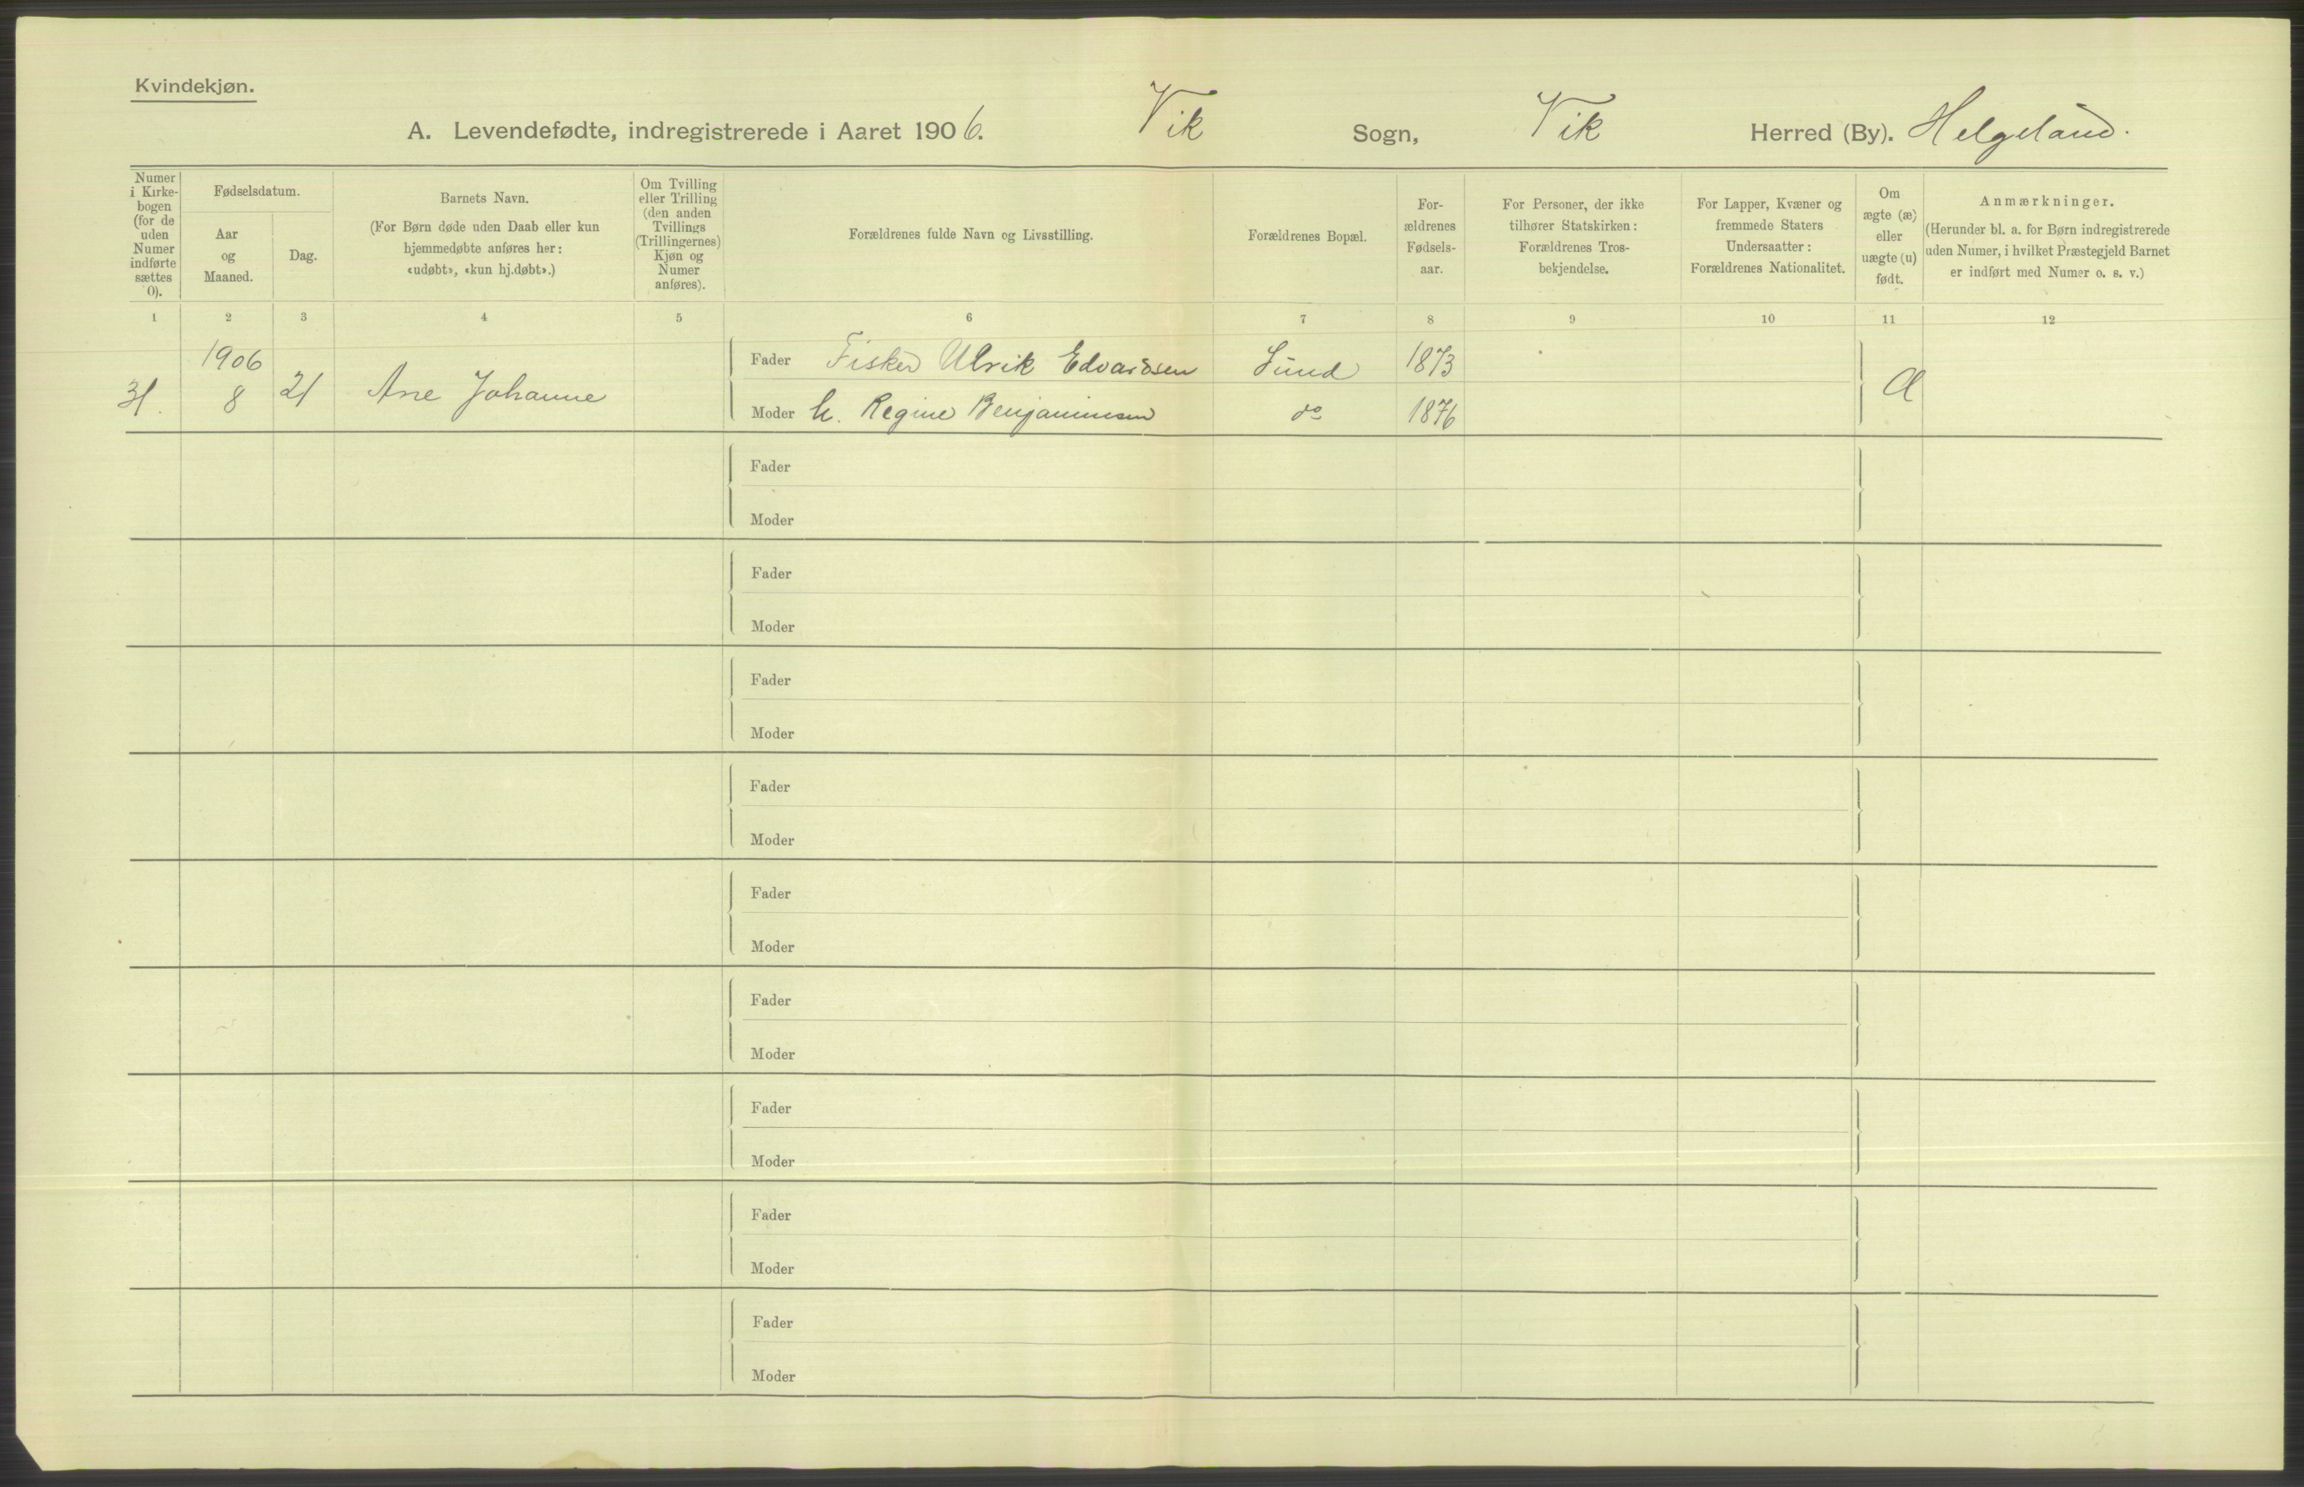 Kvindekjøn.
A. Levendefødte, indregistrerede i Aaret 1906. Vik Sogn, Vik Herred (By). Helgeland.
Numer i Kirkebogen (for de uden Numer indførte sættes 0).
Fødselsdatum.
Aar og Maaned.
Dag.
Barnets Navn.
(For Børn døde uden Daab eller kun hjemmedøbte anføres her: «udøbt», «kun hj.døbt».)
Om Tvilling eller Trilling (den anden Tvillings (Trillingernes) Kjøn og Numer anføres).
Forældrenes fulde Navn og Livsstilling.
Forældrenes Bopæl.
Forældrenes Fødselsaar.
For Personer, der ikke tilhører Statskirken: Forældrenes Trosbekjendelse.
For Lapper, Kvæner og fremmede Staters Undersaatter: Forældrenes Nationalitet.
Om ægte (æ) eller uægte (u) født.
Anmærkninger.
(Herunder bl. a. for Børn indregistrerede uden Numer, i hvilket Præstegjeld Barnet er indført med Numer o. s. v.)
1 2 3 4 5 6 7 8 9 10 11 12
1906 Fader Fisker Ulrik Edvardsen Sund 1873
31. 8 21 Ane Johanne Moder h. Regine Benjaminsen do 1876 Æ
Fader
Moder
Fader
Moder
Fader
Moder
Fader
Moder
Fader
Moder
Fader
Moder
Fader
Moder
Fader
Moder
Fader
Moder